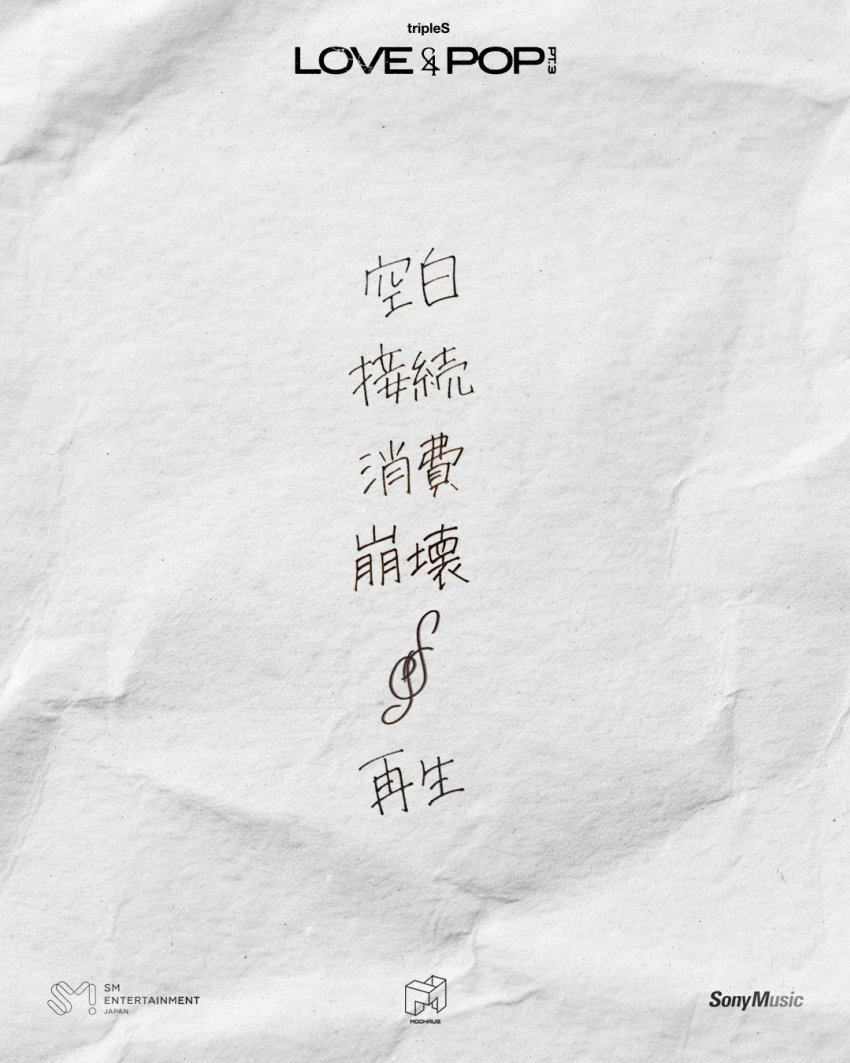 tripleS
LOVE & POP PT.3
空白
接続
消費
崩壊
再生
SM
ENTERTAINMENT
JAPAN
MODHAUS
SonyMusic